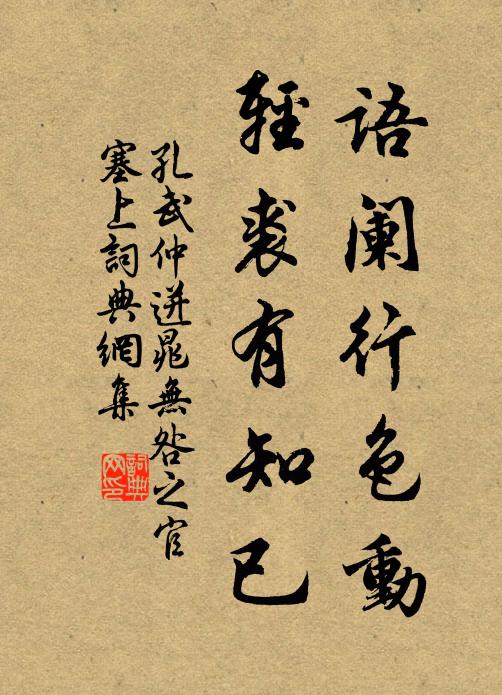 語闌行色動
輕裘有知己
孔武仲送晁無咎之官
塞上詞典網集
詞典
网印